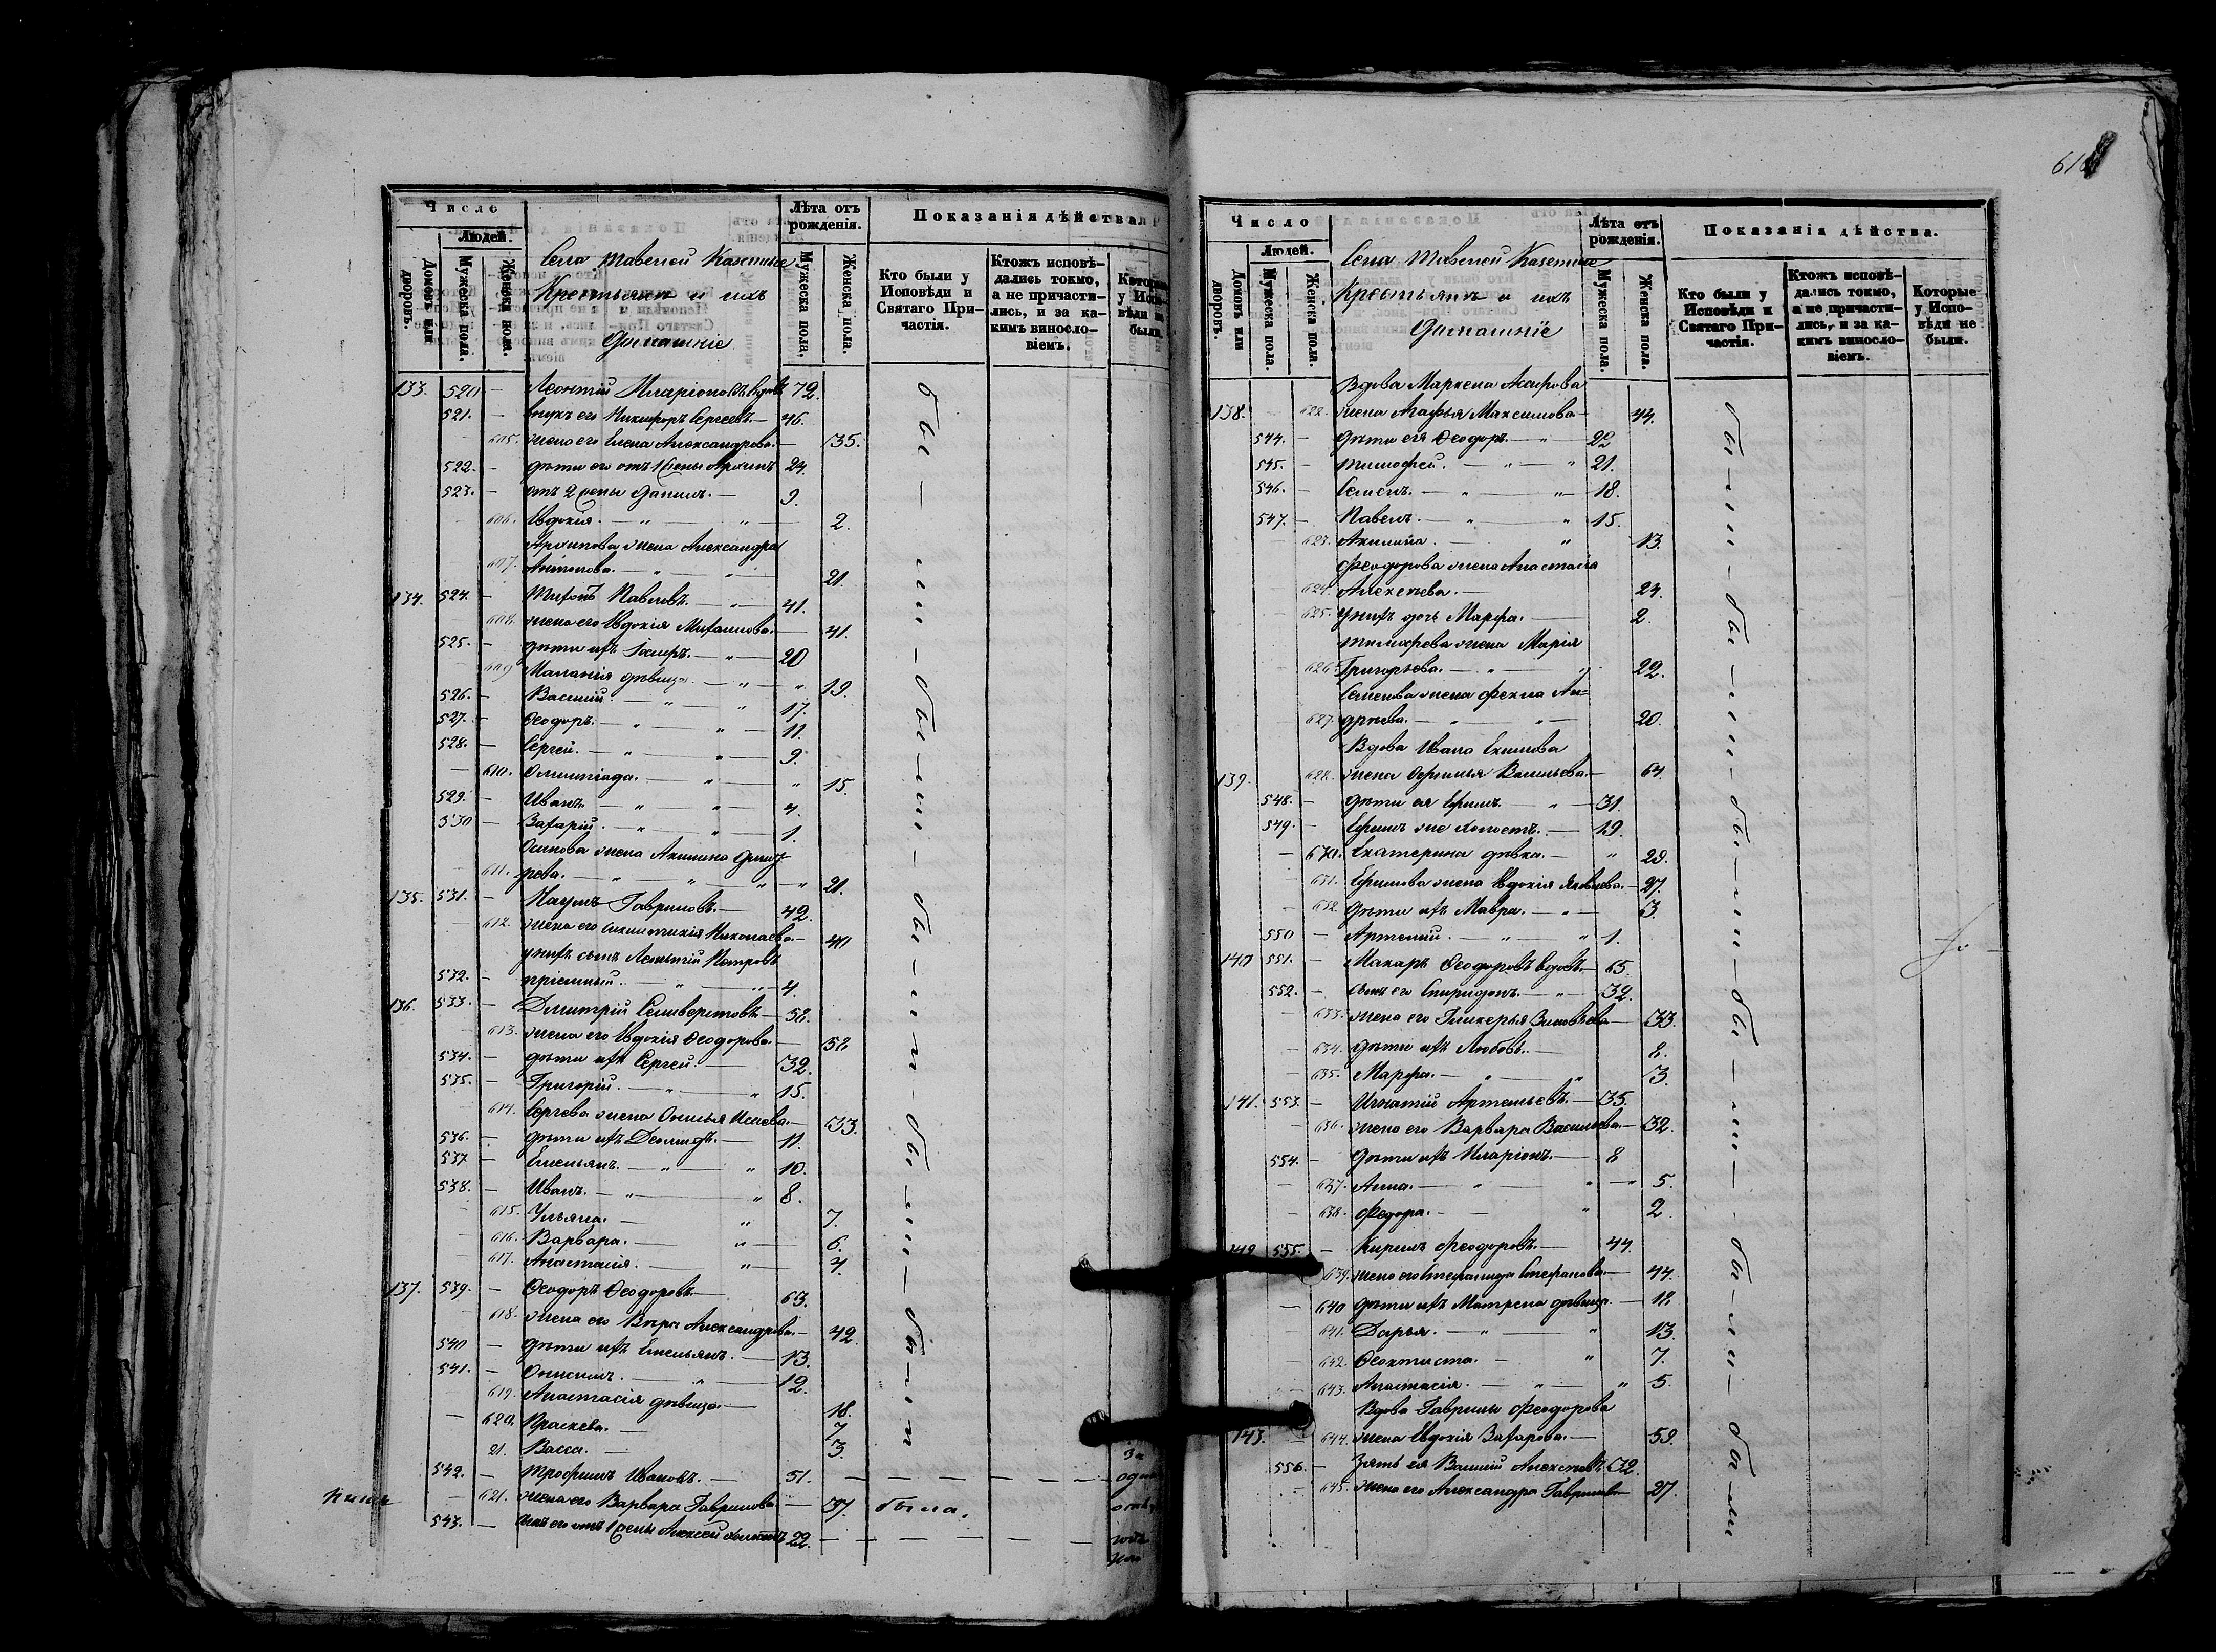 Число
Людей.
Домовъ или дворовъ.
Мужеска пола.
Женска пола.
Села Тавелей Казенные
Крестьяне и ихъ
Домашніе
Лѣта отъ рожденія.
Мужеска пола,
Женска пола.
Показанія дѣйства
Кто были у Исповѣди и Святаго Причастія.
Ктожъ исповѣдались токмо, а не причастились, и за какимъ винословіемъ.
133. 520 – Леонтій Иларіоновъ вдовъ 72.
521. – внукъ его Никифоръ Сергеевъ. – 46.
605. жена его Елена Александрова. – 35.
522. – дѣти его отъ 1 жены Архипъ 24.
523. – отъ 2 жены Данилъ. – 9.
606. Евдокія. – „ – „ – 2.
Архипова жена Александра
607. Антонова. – „ – „ – 21.
134. 524. – Тихонъ Павловъ. – „ – 41.
608. жена его Евдокія Михаилова. – 41.
525. – дѣти ихъ Іосифъ. – „ – 20
609 Маланія дѣвица. – „ – „ 19.
526. – Василій. – „ – „ 17.
527. – Ѳеодоръ. – „ – „ – 11.
528. – Сергей. – „ – „ – 9.
– 610. Олимпіада. – „ – „ 15.
529. – Иванъ. – „ – „ – 4.
530 – Захарій. – „ – „ – 1.
Осипова жена Акилина
611. – „ – „ – „ – „ 21.
135. 531. – Наумъ Гавриловъ. – 42.
612. жена его Николаева. – 40
у нихъ сынъ Леонтій Петровъ
532. – пріемный. – „ – „ – 4.
136. 533. – Димитрій Селиверстовъ – 58.
613. жена его Евдокія Ѳеодорова. – 58
534. – дѣти ихъ Сергей. – 32.
535. – Григорій. – „ – „ 15.
614. Сергеева жена Исаева. – 33.
536. – дѣти ихъ Леонидъ. – 11.
537 – Емельянъ. – „ – „ 10.
538. – Иванъ. – „ – „ 8.
615. Ульяна. – „ 7.
616. Варвара. – „ – 6.
617. Анастасія. – „ – 4.
137. 539. – Ѳеодоръ Ѳеодоровъ. – 63.
618. жена его Вѣра Александрова. – 42.
540 – дѣти ихъ Емельянъ. – 13.
541. – Онисимъ. – „ – 12.
619. Анастасія дѣвица. – 18.
– 620. Праскева. – 7.
21. Васса. – 3.
542. – Трофимъ Ивановъ. – 51. – – – – – –
– 621. жена его Варвара Гаврилова – 37. была.
543. – сынъ его отъ 1 жены Алексей холостъ 22. – – – – – –
бы – ли – бы – ли – бы – ли – бы – ли – бы – ли
616
Число
Людей.
Домовъ или дворовъ.
Мужеска пола.
Женска пола.
Села Тавелей Казенные
Крестьянъ и ихъ
Домашніе
Лѣта отъ рожденія.
Мужеска пола.
Женска пола.
Показанія дѣйства.
Кто были у Исповѣди и Святаго Причастія.
Ктожъ исповѣдались токмо, а не причастились, и за какимъ винословіемъ.
Которые у Исповѣди не были.
Вдова Маркела
138. 622. жена Агафья Максимова – 44.
544. – дѣти ея Ѳеодоръ. – „ – 22
545. – Тимофей. – „ – „ 21.
546. – Семенъ. – „ – „ – 18.
547. – Павелъ. – „ – „ 15.
623. Акилина. – „ 13.
Феодорова жена Анастасія
624. Алексеева. – 24.
– 625. у нихъ дочь Марфа. – 2.
Тимофеева жена Марія
626. Григорьева. – „ – „ 22.
Семенова жена Фекла Ан=
627. дреева. – „ – „ – 20.
Вдова Ивана Екимова
139. 628. жена Офимья Васильева. – 64.
548. – дѣти ея Ефимъ. – „ – 31.
549. – Ефимъ же холостъ. – 19.
– 630. Екатерина дѣвка. – „ 29.
– 631. Ефимова жена Евдокія Яковлева. – 27.
– 632. дѣти ихъ Мавра. – „ – 3.
550 – Артемій. – „ – „ 1.
140 551. – Макаръ Ѳеодоровъ вдовъ. – 65.
552. – сынъ его Спиридонъ. – „ – 32.
– 633. жена его Гликерья Зиновьева – 33.
– 634. дѣти ихъ Любовь. – 8.
– 635. Марфа. – „ – „ 3.
141. 553. – Игнатій Артемьевъ. – 35.
– 636. жена его Варвара Васильева. – 32.
554. – дѣти ихъ Иларіонъ. – 8
– 637. Анна. – „ – „ – „ 5.
– 638. Федора. – – „ 2
142 555. – Кирилъ Феодоровъ. – 44.
639. жена его Стефанида Стефанова. – 44.
– 640 дѣти ихъ Матрена дѣвица. – 18
– 641. Дарья. – „ – „ 13.
– 642. Ѳеоктиста. – „ 7.
– 643. Анастасія. – „ – „ 5.
Вдова Гаврилы Феодорова
143. – 644. жена Евдокія Захарова. – 59.
556. – Зять ея Василій Алексеевъ 32.
– 645. жена его Александра Гаврилова – 27.
бы – ли – бы – ли – бы – ли – бы – ли – бы – ли – бы – ли